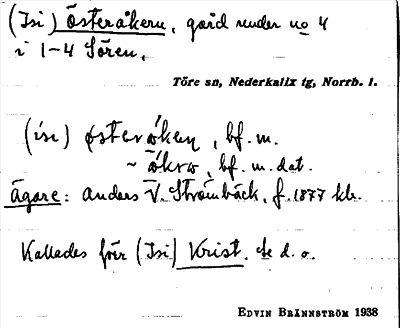 (Isi) Österåkern, gård under no 4
i 1-4 Sören.
Töre sn, Nederkalix tg, Norrb. l.
(isi) østeråken, bf. m.
~ åkrω, bf. m. dat.
Ägare: Anders V. Strömbäck, f. 1877 kbr.
Kallades förr (Isi) Krist. se d. o.
EDVIN BRÄNNSTRÖM 1938